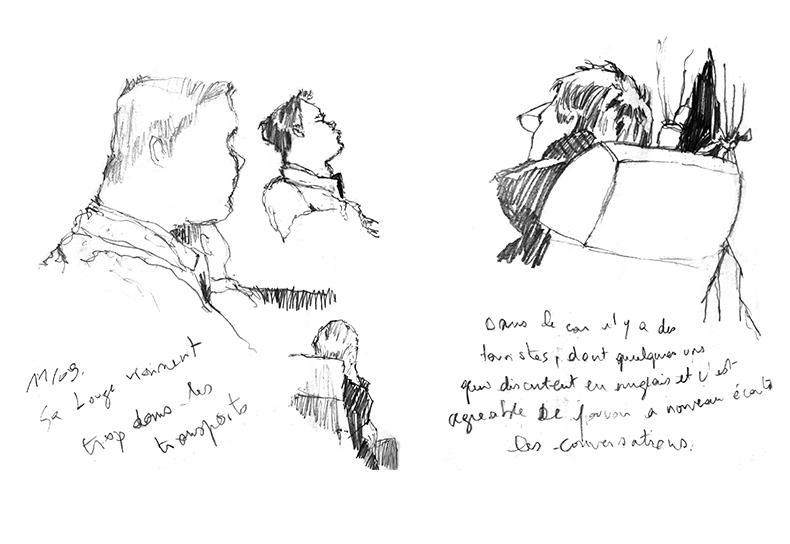 11/09.
Sa bouge vraiment
trop dans les
transports
Dans le car il y a des
touristes, dont quelques uns
qui discutent en anglais et c'est
agréable de pouvoir a nouveau écouter
les conversations.